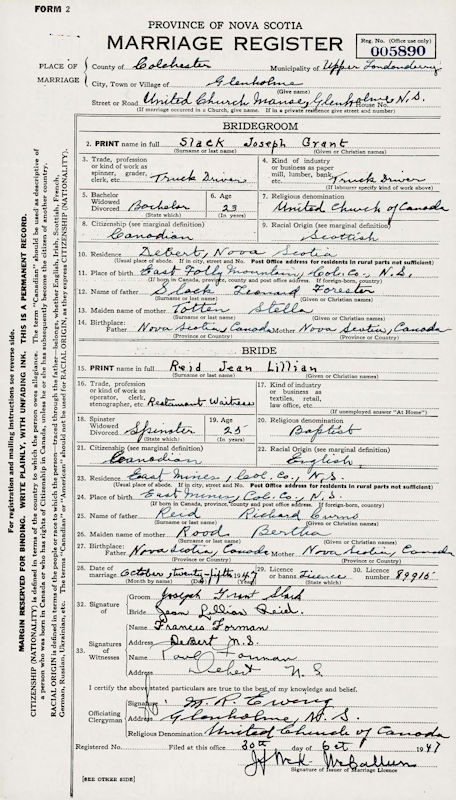 FORM 2
PROVINCE OF NOVA SCOTIA
MARRIAGE REGISTER
Reg. No. (Office use only)
005890
PLACE OF MARRIAGE
County of Colchester Municipality of Upper Londonderry
City, Town or Village of Glenholme
(Give name)
Street or Road United Church Manse, Glenholme N.S.
(If marriage occurred in a Church, give name. If in a private house give street and number)
BRIDEGROOM
2. PRINT name in full Slack Joseph Grant
(Surname or last name) (Given or Christian names)
3. Trade, profession or kind of work as spinner, grader, clerk, etc. Truck Driver
4. Kind of industry or business as paper mill, lumber, bank, etc. Truck Driver
(If labourer specify kind of work above)
5. Bachelor Widowed Divorced Bachelor
(State which)
6. Age 25
(In years)
7. Religious denomination
United Church of Canada
8. Citizenship (see marginal note)
Canadian
9. Racial Origin (see marginal note)
Scottish
10. Residence Debert, Nova Scotia
(Usual place of abode. If in city, street and No. Post Office address for residents in rural parts not sufficient)
11. Place of birth East Folly Mountain, Col. Co., N.S.
(If born in Canada, province, county and post office address. If foreign-born, country)
12. Name of father Slack Leonard Forester
(Surname or last name) (Given or Christian names)
13. Maiden name of mother Totten Stella
(Surname or last name) (Given or Christian names)
14. Birthplace: Father Nova Scotia, Canada Mother Nova Scotia, Canada
(Province or Country) (Province or Country)
BRIDE
15. PRINT name in full Reid Jean Lillian
(Surname or last name) (Given or Christian names)
16. Trade, profession or kind of work as operator, clerk, stenographer, etc. Restaurant Waitress
17. Kind of industry or business as textiles, retail, law office, etc.
(If unemployed answer "At Home")
18. Spinster Widowed Divorced Spinster
(State which)
19. Age 25
(In years)
20. Religious denomination
Baptist
21. Citizenship (see marginal note)
Canadian
22. Racial Origin (see marginal note)
English
23. Residence East Mines, Col. Co., N.S.
(Usual place of abode. If in city, street and No. Post Office address for residents in rural parts not sufficient)
24. Place of birth East Mines, Col. Co., N.S.
(If born in Canada, province, county and post office address. If foreign-born, country)
25. Name of father Reid Richard
(Surname or last name) (Given or Christian names)
26. Maiden name of mother Rood Bertha
(Surname or last name) (Given or Christian names)
27. Birthplace: Father Nova Scotia, Canada Mother Nova Scotia, Canada
(Province or Country) (Province or Country)
28. Date of marriage October, twenty-fifth 1947
(Month by name) (Day)
29. License or banns License
30. Licence number 89915
32. Signature of
Groom Joseph Grant Slack
Bride Jean Lillian Reid
33. Signatures of Witnesses
Name Francis Forman
Address Debert N.S.
Name Forman
Address Debert N.S.
I certify the above stated particulars are true to the best of my knowledge and belief.
Officiating Clergyman
Signature
Address Glenholme, N.S.
Religious Denomination United Church of Canada
Registered No. Filed at this office 30th day of Oct 1947
Signature of Issuer of Marriage Licence
[SEE OTHER SIDE]
For registration and mailing instructions see reverse side.
MARGIN RESERVED FOR BINDING. WRITE PLAINLY, WITH UNFADING INK. THIS IS A PERMANENT RECORD.
CITIZENSHIP (NATIONALITY) is defined in terms of the country to which the person owes allegiance. The term "Canadian" should be used as descriptive of
a person who was born in Canada or who has rights of citizenship in Canada, unless he or she has subsequently become the citizen of another country.
RACIAL ORIGIN is defined in terms of the people or race to which the person—traced through the father—belongs, whether English, Irish, Scottish, French,
German, Russian, Ukrainian, etc. The terms "Canadian" or "American" should not be used for RACIAL ORIGIN, as they express CITIZENSHIP (NATIONALITY).